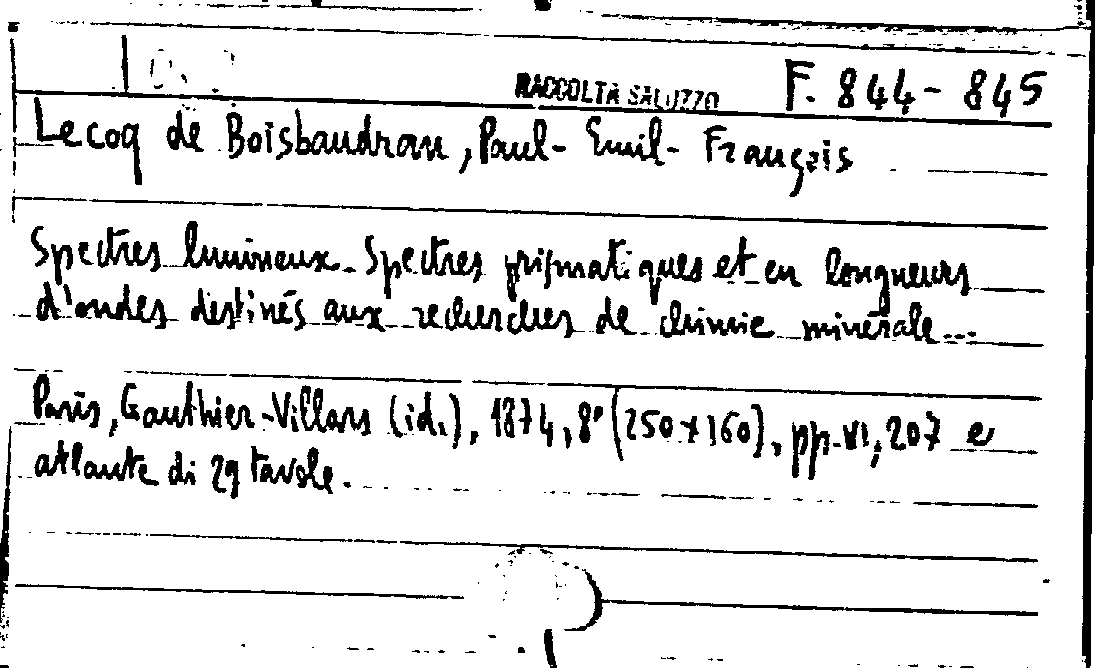 RACCOLTA SALUZZO F. 844-845
Lecoq de Boisbaudran, Paul-Emil-Français
Spectres lumineux. Spectres prismatiques et en longueurs
d'ondes destinés aux recherches de chimie minérale...
Paris, Gauthier-Villars (id.), 1874, 8° (250x160), pp. VI, 207 e
atlante di 29 tavole.